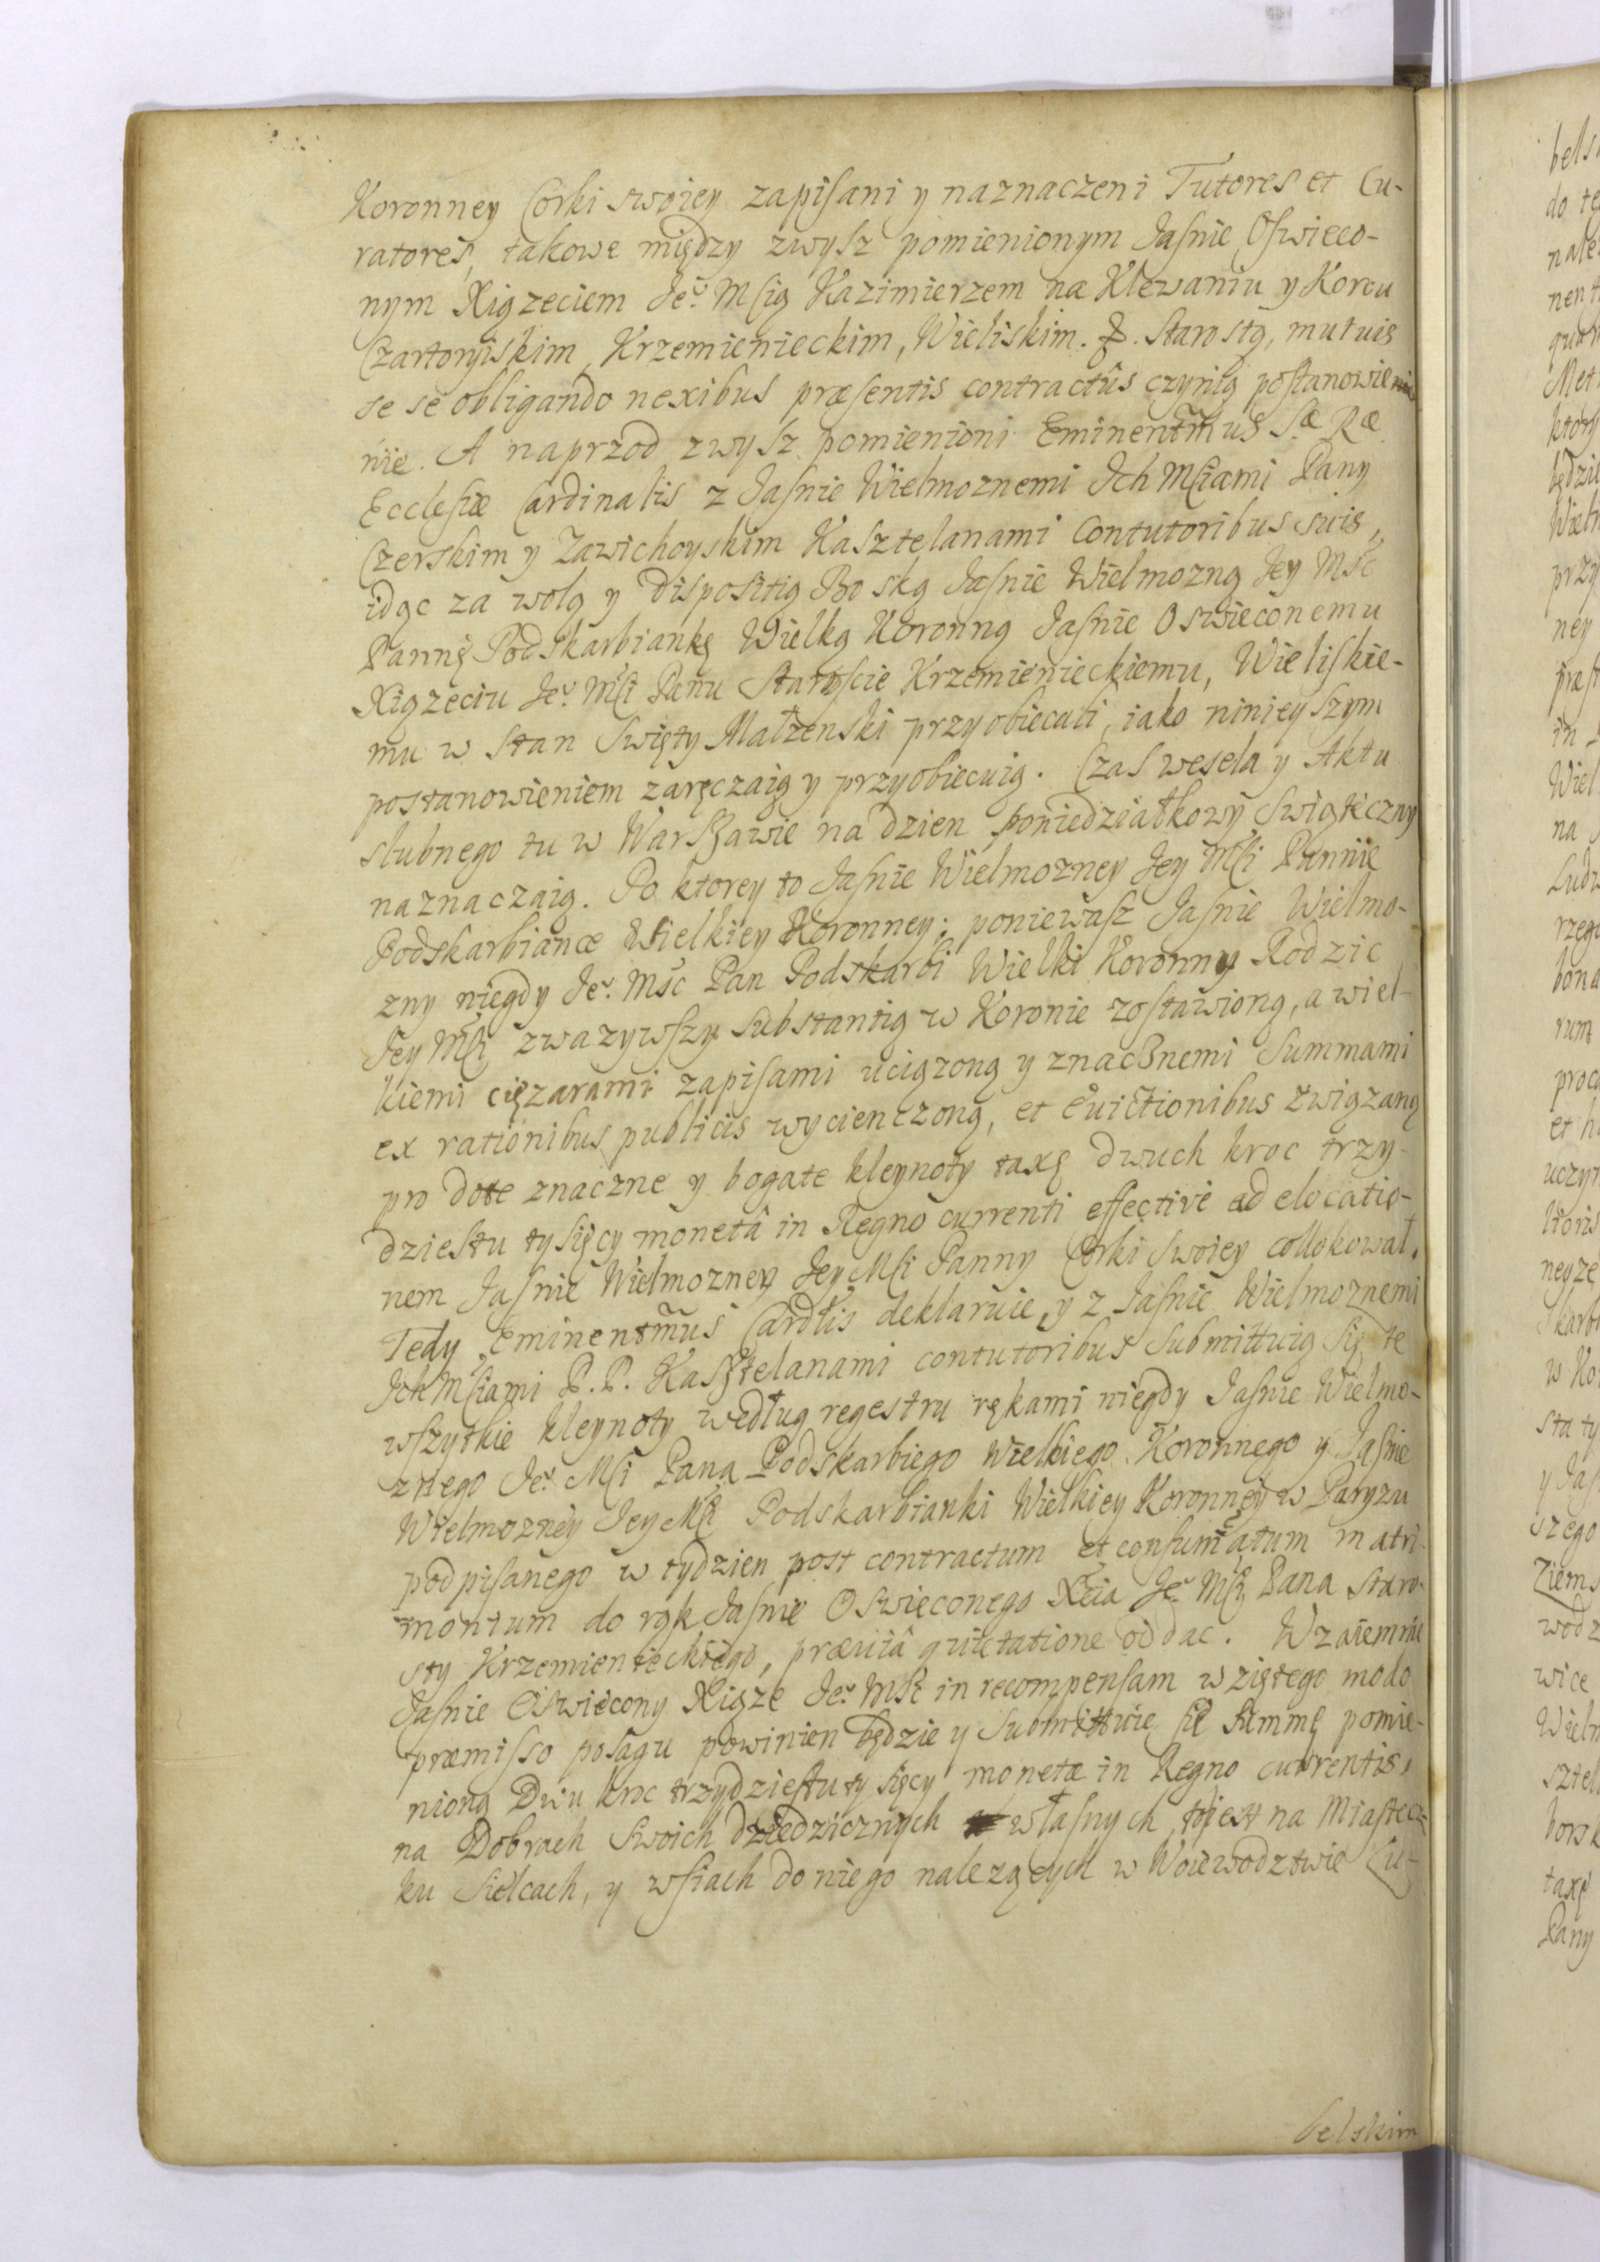 Koronney Corki swoiey zapisani y naznaczeni Tutores et Cu-
ratores, takowe między zwysz pomienionym Jaśnie Oświeco-
nym Xiązeciem Je° Mścią Kazimierzem na Klewaniu y Korcu
Czartoryiskim, Krzemienieckim, Wieliskim. &. Starostą, mutuis
se se obligando nexibus præsentis contractûs czynią postanowienie
nie. A naprzod zwysz pomienioni Eminentm̃us S.æ R.æ
Ecclesiæ Cardinalis z Jaśnie Wielmoznemi Ich Mściami Pany
Czerskim y Zawichoyskim Kasztelanami Contutoribus suis,
idąc za wolą y dispositią Boską Jaśnie Wielmozną Jey Mść
Pannę Podskarbiankę Wielką Koronną Jaśnie Oswieconemu
Xiązeciu Je° Mśći Panu Staroście Krzemienieckiemu, Wieliskie-
mu w stan Swięty Małzenski przyobiecali, iako ninieyszym
postanowieniem zaręczaią y przyobiecuią. Czas wesela y Aktu
slubnego tu w Warszawie na dzien poniedziałkowy Swiąteczny
naznaczaią. Po ktorey to Jaśnie Wielmozney Jey Mśći Pannie
Podskarbiance Wielkiey Koronney; poniewasz Jaśnie Wielmo-
zny niegdy Je° Mść Pan Podskarbi Wielki Koronny Rodzic
Jey Mśći zwazywszy substantią w Koronie zostawioną, a wiel-
kiemi cięzarami zapisami uciązoną y znacznemi Summami
ex rationibus publicis wycienczoną, et euictionibus związaną
pro dote znaczne y bogate kleynoty taxę dwuch kroc trzy-
dziestu tysięcy monetâ in Regno currenti effectivè ad elocatio-
nem Jaśnie Wielmozney Jey Mśći Panny Corki swoiey collokował.
Tedy Eminentm̃us Cardlis deklaruie, y z Jaśnie Wielmoznemi
Ich Mściami P. P. Kasztelanami contutoribus submittuią się te
wszytkie kleynoty według regestru rękami niegdy Jaśnie Wielmo-
znego Je° Mśći Pana Podskarbiego Wielkiego Koronnego y Jaśnie
Wielmozney Jey Mśći Podskarbianki Wielkiey Koronney w Paryzu
podpisanego w tydzien post contractum et consum̃atum matri-
monium do rąk Jaśnie Oswięconego Xcia Je° Mśći Pana Staro-
sty Krzemienieckiego, præuiâ quietatione oddac. Wzaiemnie
Jaśnie Oswięcony Xiąze Je° Mść in recompensam wziętego modo
præmisso posagu powinien będzie y submittuie się summę pomie-
nioną Dwu kroc trzydziestu tysięcy monetæ in Regno currentis,
na Dobrach swoich dziedzicznych własnych, to iest na Miastecz-
ku Sielcach, y wsiach do niego nalezących w Woiewodztwie Lu-
belskim